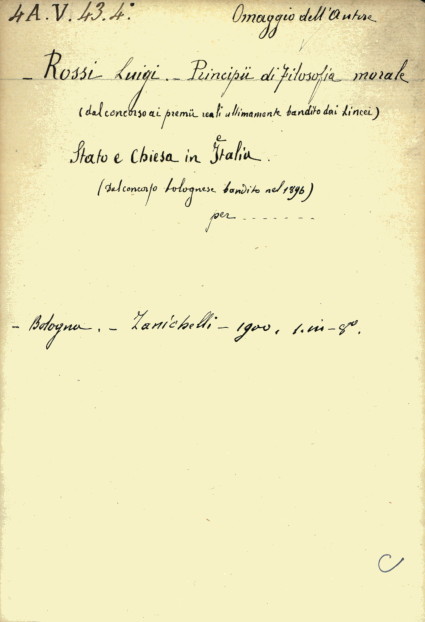 4A.V.43.4. Omaggio dell'Autore
- Rossi Luigi. - Principii di filosofia morale
(dal concorso ai premii reali ultimamente bandito dai Lincei)
e
Stato e Chiesa in Italia.
(dal concorso bolognese bandito nel 1896)
per .......
- Bologna. - Zanichelli - 1900, 1. in-8º.
C